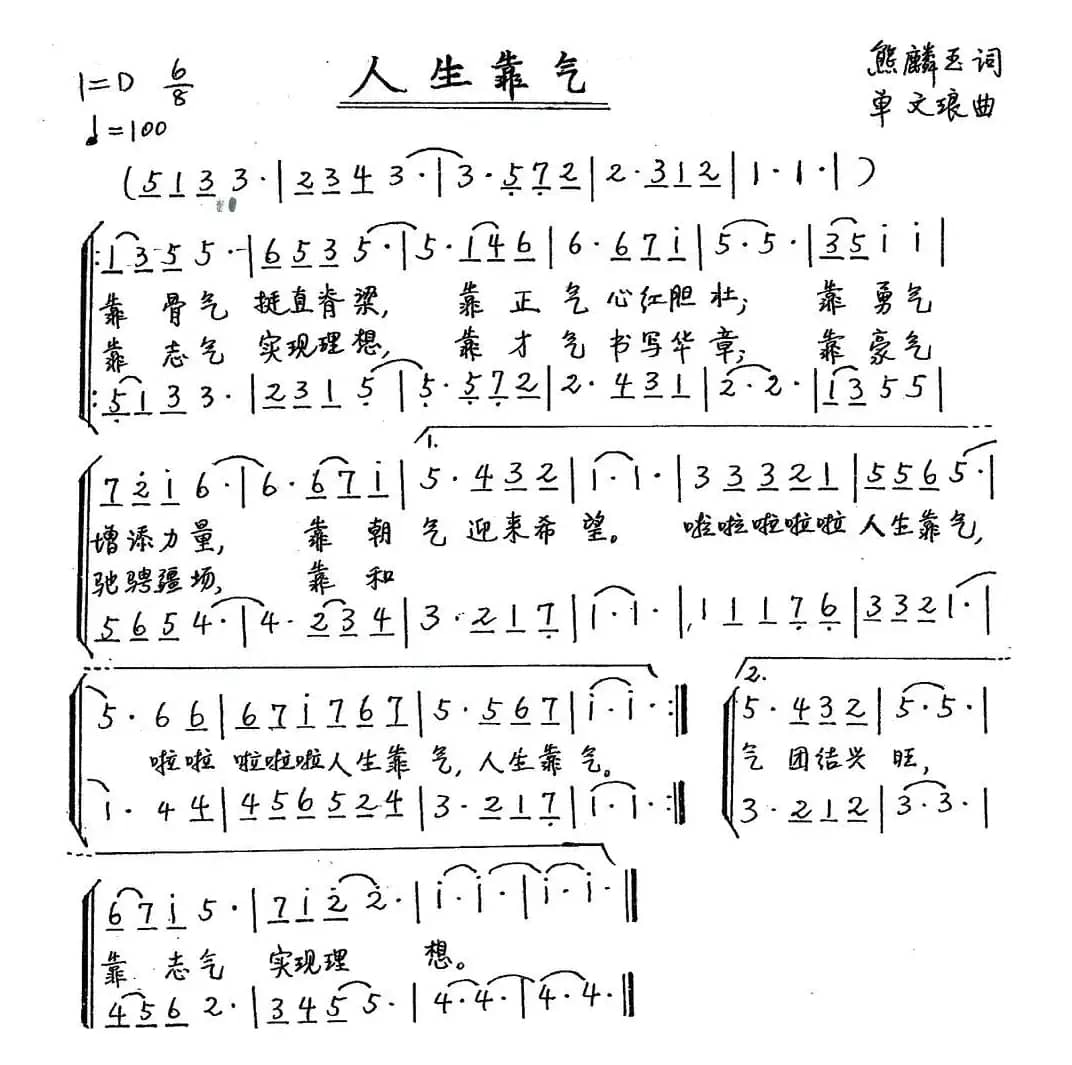 人生靠气
1=D 6/8
♩=100
熊麟玉词
单文琅曲
(5 1 3 3·|2 3 4 3·|3·5 7 2|2·3 1 2|1·1·|)
:1 3 5 5·|6 5 3 5·|5·1 4 6|6·6 7 i|5·5·|3 5 i i|
靠骨气 挺直脊梁, 靠正气 心红胆壮; 靠勇气
靠志气 实现理想, 靠才气 书写华章; 靠豪气
:5 1 3 3·|2 3 1 5|5·5 7 2|2·4 3 1|2·2·|1 3 5 5|
1.
7 2 i 6·|6·6 7 i|5·4 3 2|i·i·|3 3 3 2 1|5 5 6 5·|
增添力量, 靠朝气迎来希望。 啦啦啦啦啦 人生靠气,
驰骋疆场, 靠和
5 6 5 4·|4·2 3 4|3·2 1 7|1·1·|1 1 1 7 6|3 3 2 1·|
2.
5·6 6|6 7 i 7 6 7|5·5 6 7|i·i·:‖ 5·4 3 2|5·5·|
啦啦 啦啦啦人生靠气, 人生靠气。 气团结兴旺,
1·4 4|4 5 6 5 2 4|3·2 1 7|1·1·:‖ 3·2 1 2|3·3·|
6 7 i 5·|7 i 2 2·|i·i·|i·i·‖
靠志气 实现理想。
4 5 6 2·|3 4 5 5·|4·4·|4·4·‖